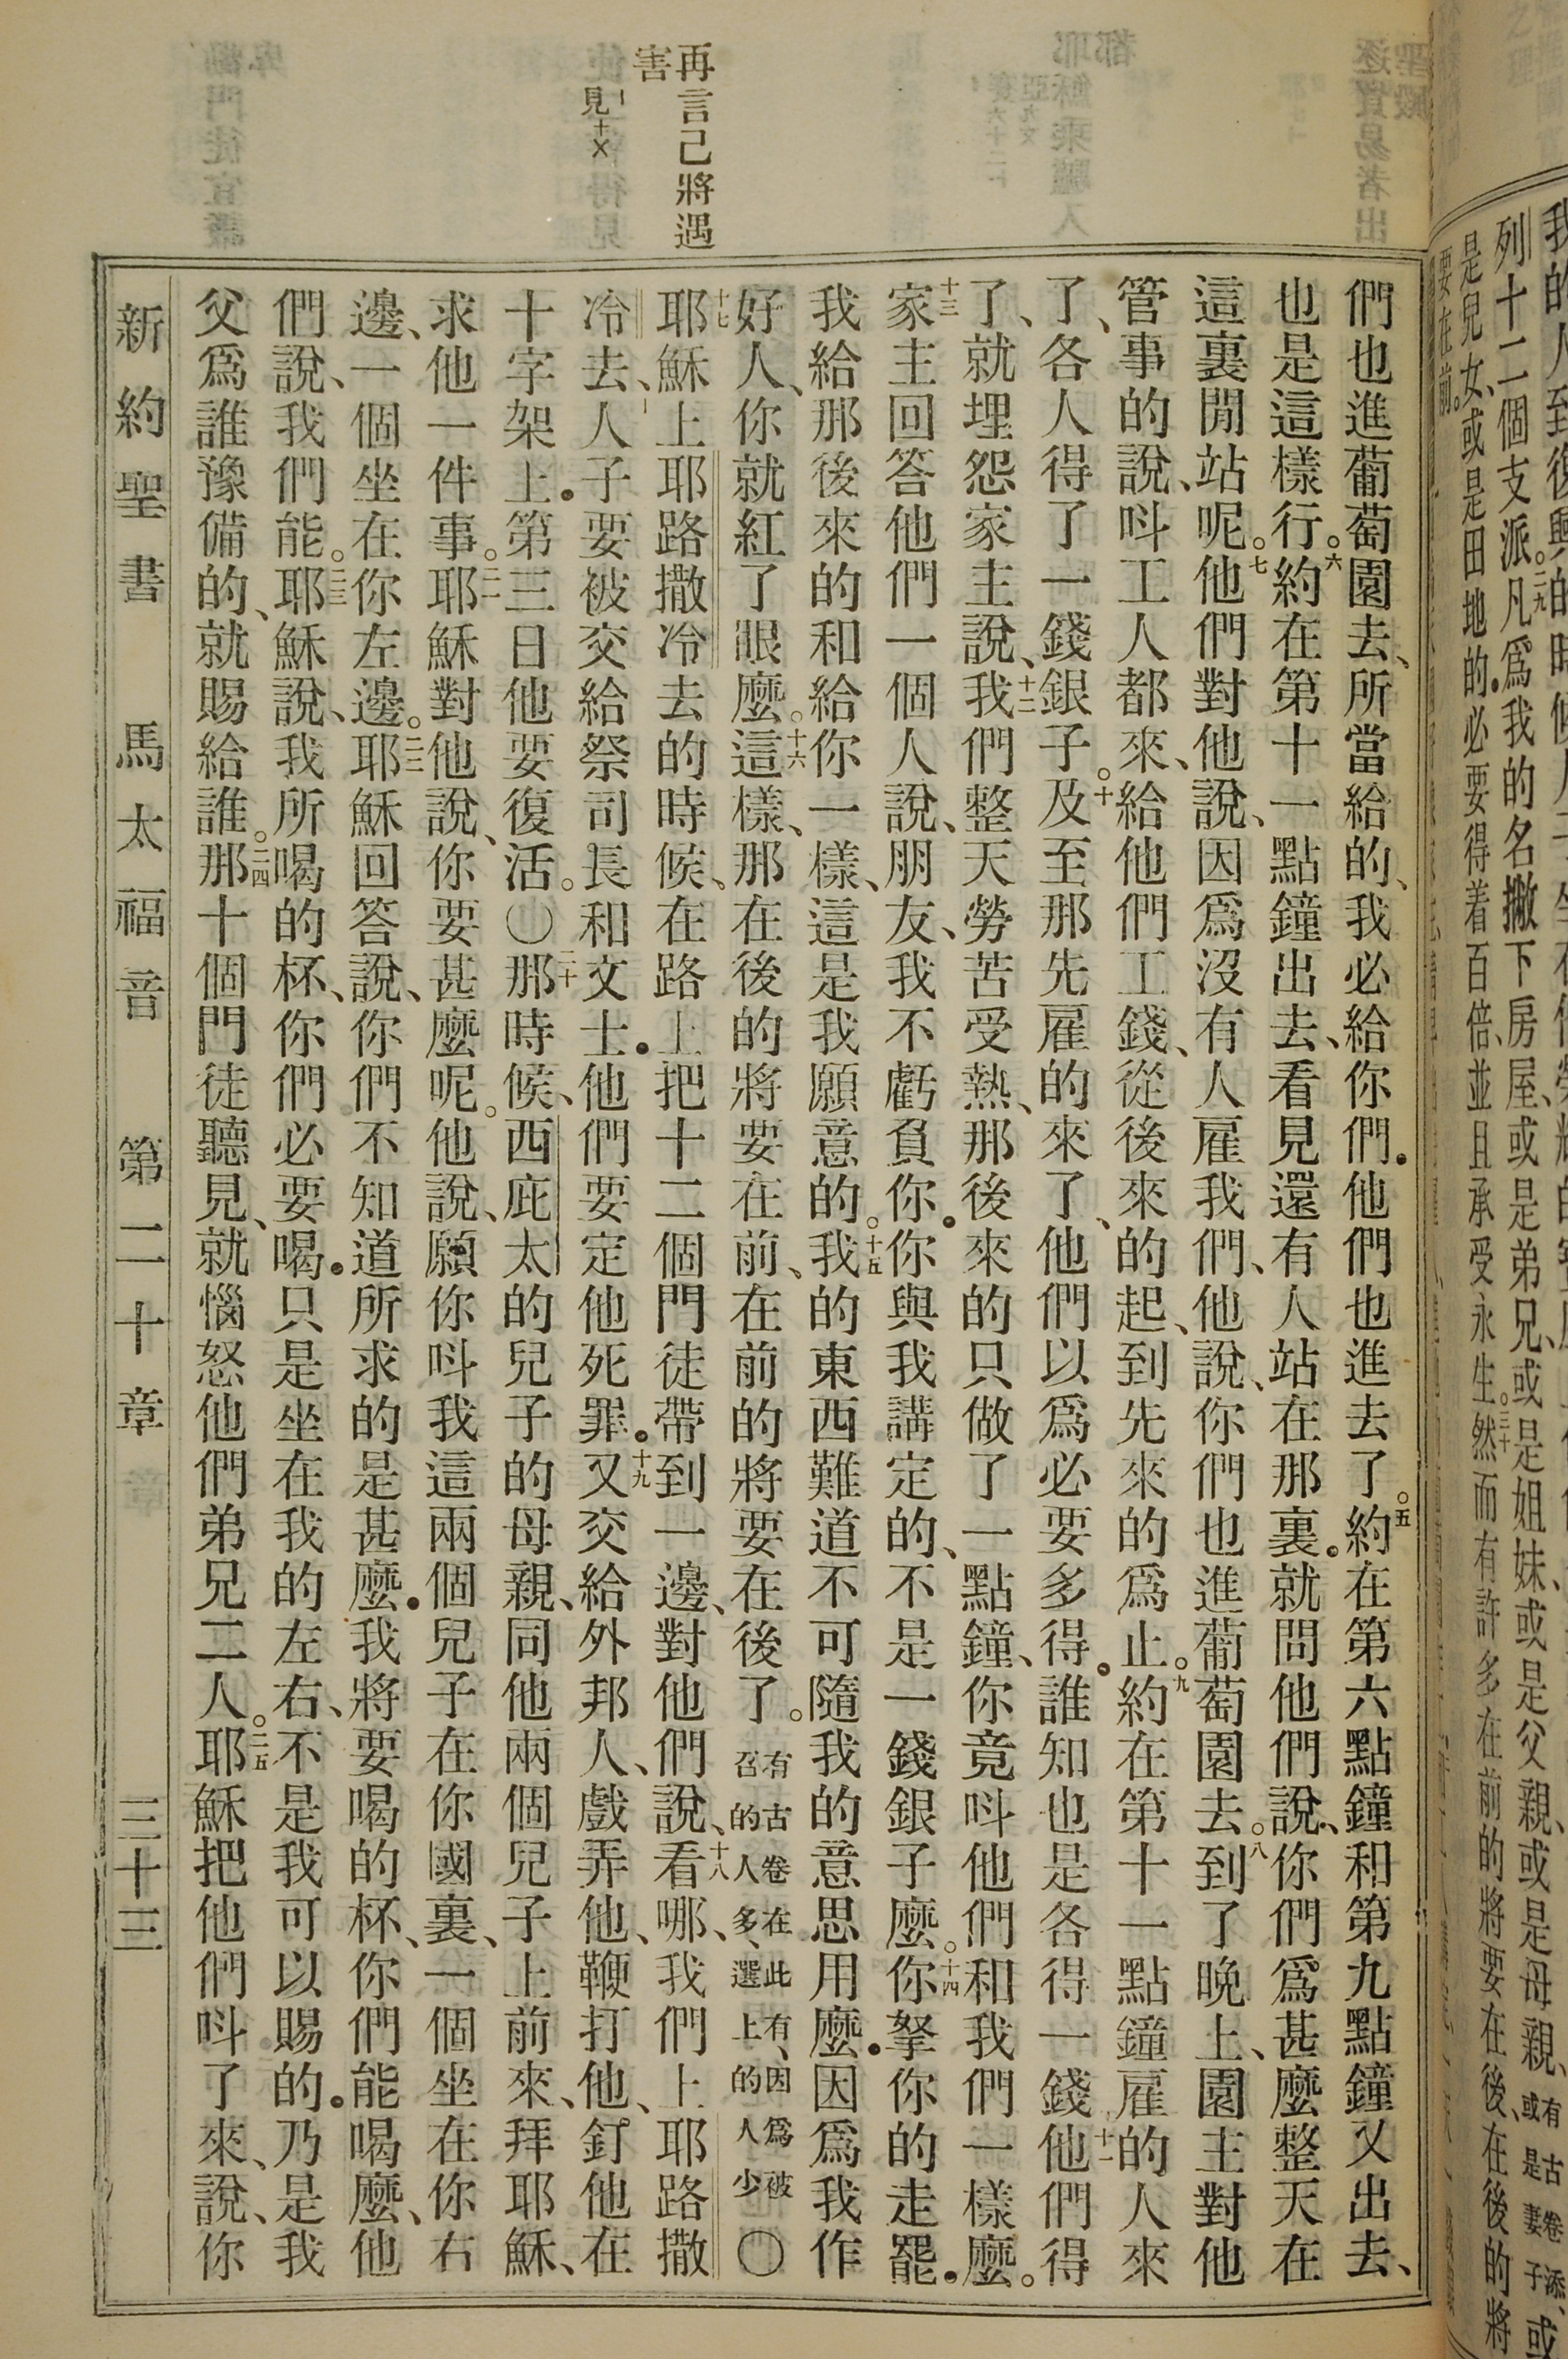 再言己將遇
害
見十乂
們也進葡萄園去、所當給的、我必給你們．他們也進去了。五約在第六點鐘和第九點鐘又出去、
也是這樣行。六約在第十一點鐘出去、看見還有人站在那裏．就問他們說、你們爲甚麼整天在
這裏閒站呢。七他們對他說、因爲沒有人雇我們、他說、你們也進葡萄園去。八到了晚上、園主對他
管事的說、呌工人都來、給他們工錢、從後來的起、到先來的爲止。九約在第十一點鐘雇的人來
了、各人得了一錢銀子。十及至那先雇的來了、他們以爲必要多得．誰知也是各得一錢十一他們得
了、就埋怨家主說、十二我們整天勞苦受熱、那後來的只做了一點鐘、你竟呌他們和我們一樣麼。
十三家主回答他們一個人說、朋友、我不虧負你．你與我講定的、不是一錢銀子麼。十四你拏你的走罷．
我給那後來的和給你一樣、這是我願意的。十五我的東西難道不可隨我的意思用麼．因爲我作
好人、你就紅了眼麼。十六這樣、那在後的將要在前、在前的將要在後了。有古卷在此有、因爲被召的人多、選上的人少〇
十七耶穌上耶路撒冷去的時候、在路上把十二個門徒帶到一邊、對他們說、十八看哪、我們上耶路撒
冷去、人子要被交給祭司長和文士．他們要定他死罪．十九又交給外邦人、戲弄他、鞭打他、釘他在
十字架上．第三日他要復活。〇二十那時候、西庇太的兒子的母親、同他兩個兒子上前來、拜耶穌、
求他一件事。二一耶穌對他說、你要甚麼呢。他說、願你呌我這兩個兒子在你國裏、一個坐在你右
邊、一個坐在你左邊。二二耶穌回答說、你們不知道所求的是甚麼．我將要喝的杯、你們能喝麼、他
們說、我們能。二三耶穌說、我所喝的杯、你們必要喝．只是坐在我的左右、不是我可以賜的．乃是我
父爲誰豫備的、就賜給誰。二四那十個門徒聽見、就惱怒他們弟兄二人。二五耶穌把他們呌了來、說、你
新約聖書 馬太福音 第二十章 三十三